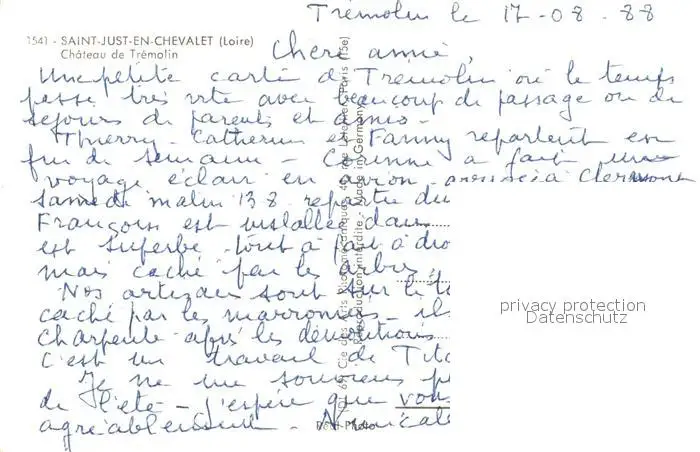 Trémolin le 17-08.88
1541 - SAINT-JUST-EN-CHEVALET (Loire)
Château de Trémolin
Chère amie,
Une petite carte de Trémolin où le temps
passe très vite avec beaucoup de passage ou de
séjours de parents et amis -
Thierry - Catherine et Fanny repartent en
fin de semaine - Corinne a fait une
voyage éclair en avion - arrivée à Clermont
samedi matin 13 8 repartie du
François est installée dans
est superbe tout à fait à dro
mais caché par les arbres
Nos artisans sont sur le t
caché par les marronniers - ils
charpente après les démolitions
c'est un travail de Tita
Je ne me souviens p
de l'été - j'espère que vous
agréablement - Amicale
Cie des Arts Photomécaniques, Paris (15e)
Reproduction interdite - Made in Germany
Photo
privacy protection
Datenschutz